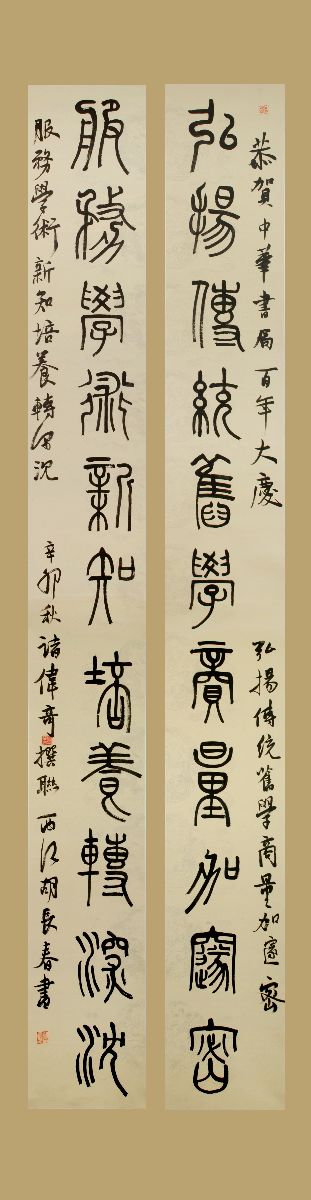 恭賀中華書局百年大慶 弘揚傳統舊學商量加邃密
弘揚傳統舊學商量加邃密
服務學術新知培養轉深沈
服務學術新知培養轉深沈 辛卯秋諸偉奇撰聯 西江胡長春書